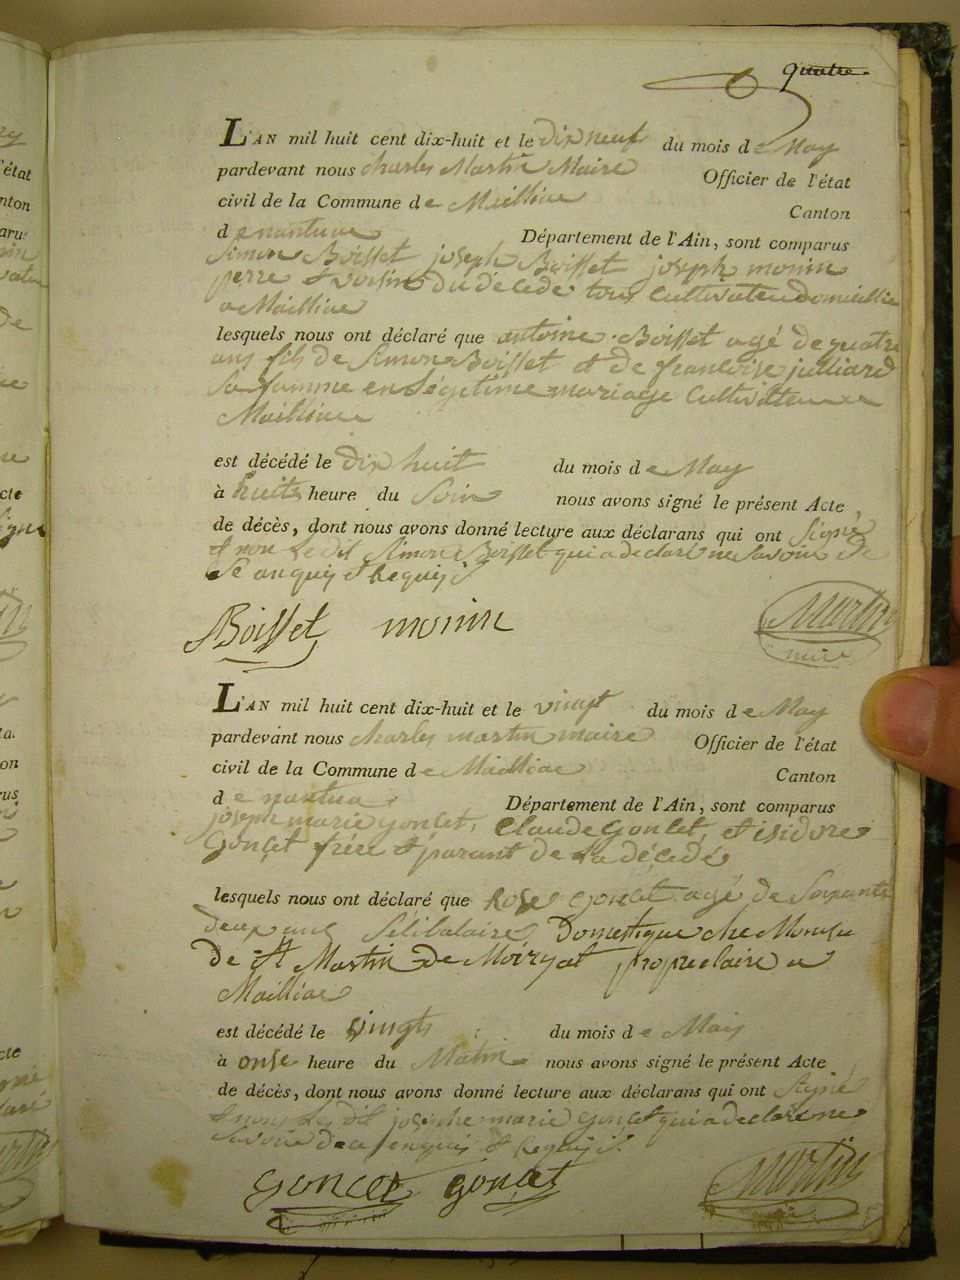 quatre
L'AN mil huit cent dix-huit et le dix neuf du mois de May
pardevant nous charles Martin Maire Officier de l'état
civil de la Commune de Mailliac Canton
de nantua Département de l'Ain, sont comparus
Simon Boisset joseph Boisset joseph monin
perre et voisin du décede tous Cultivateur domicillie
a Mailliac
lesquels nous ont déclaré que antoine Boisset agé de quatre
ans fils de Simon Boisset et de francoise julliard
Sa famme en Légitime mariage Cultivateur a
Mailliac
est décédé le dix huit du mois de May
à huits heure du Soir nous avons signé le présent Acte
de décès, dont nous avons donné lecture aux déclarans qui ont signé
et non Le dit Simon Boisset qui a déclaré ne savoir de
Ce enquis et Requis
Boisset monin Martin
maire
L'AN mil huit cent dix-huit et le vingt du mois de May
pardevant nous charles martin maire Officier de l'état
civil de la Commune de Mailliac Canton
de nantua Département de l'Ain, sont comparus
joseph marie goncet, Claude goncet, et isidore
Goncet frère et parant de La décédé
lesquels nous ont déclaré que Rose goncet agé de Soixante
deux ans Sélibataire Domestique che Monsu
de St Martin de Moiryat propriétaire a
Mailliac
est décédé le vingts du mois de May
à onse heure du Matin nous avons signé le présent Acte
de décès, dont nous avons donné lecture aux déclarans qui ont signé
et non Le dit josephe marie goncet qui a declaré ne
savoir de ce enquis et Requis
goncet goncet Martin